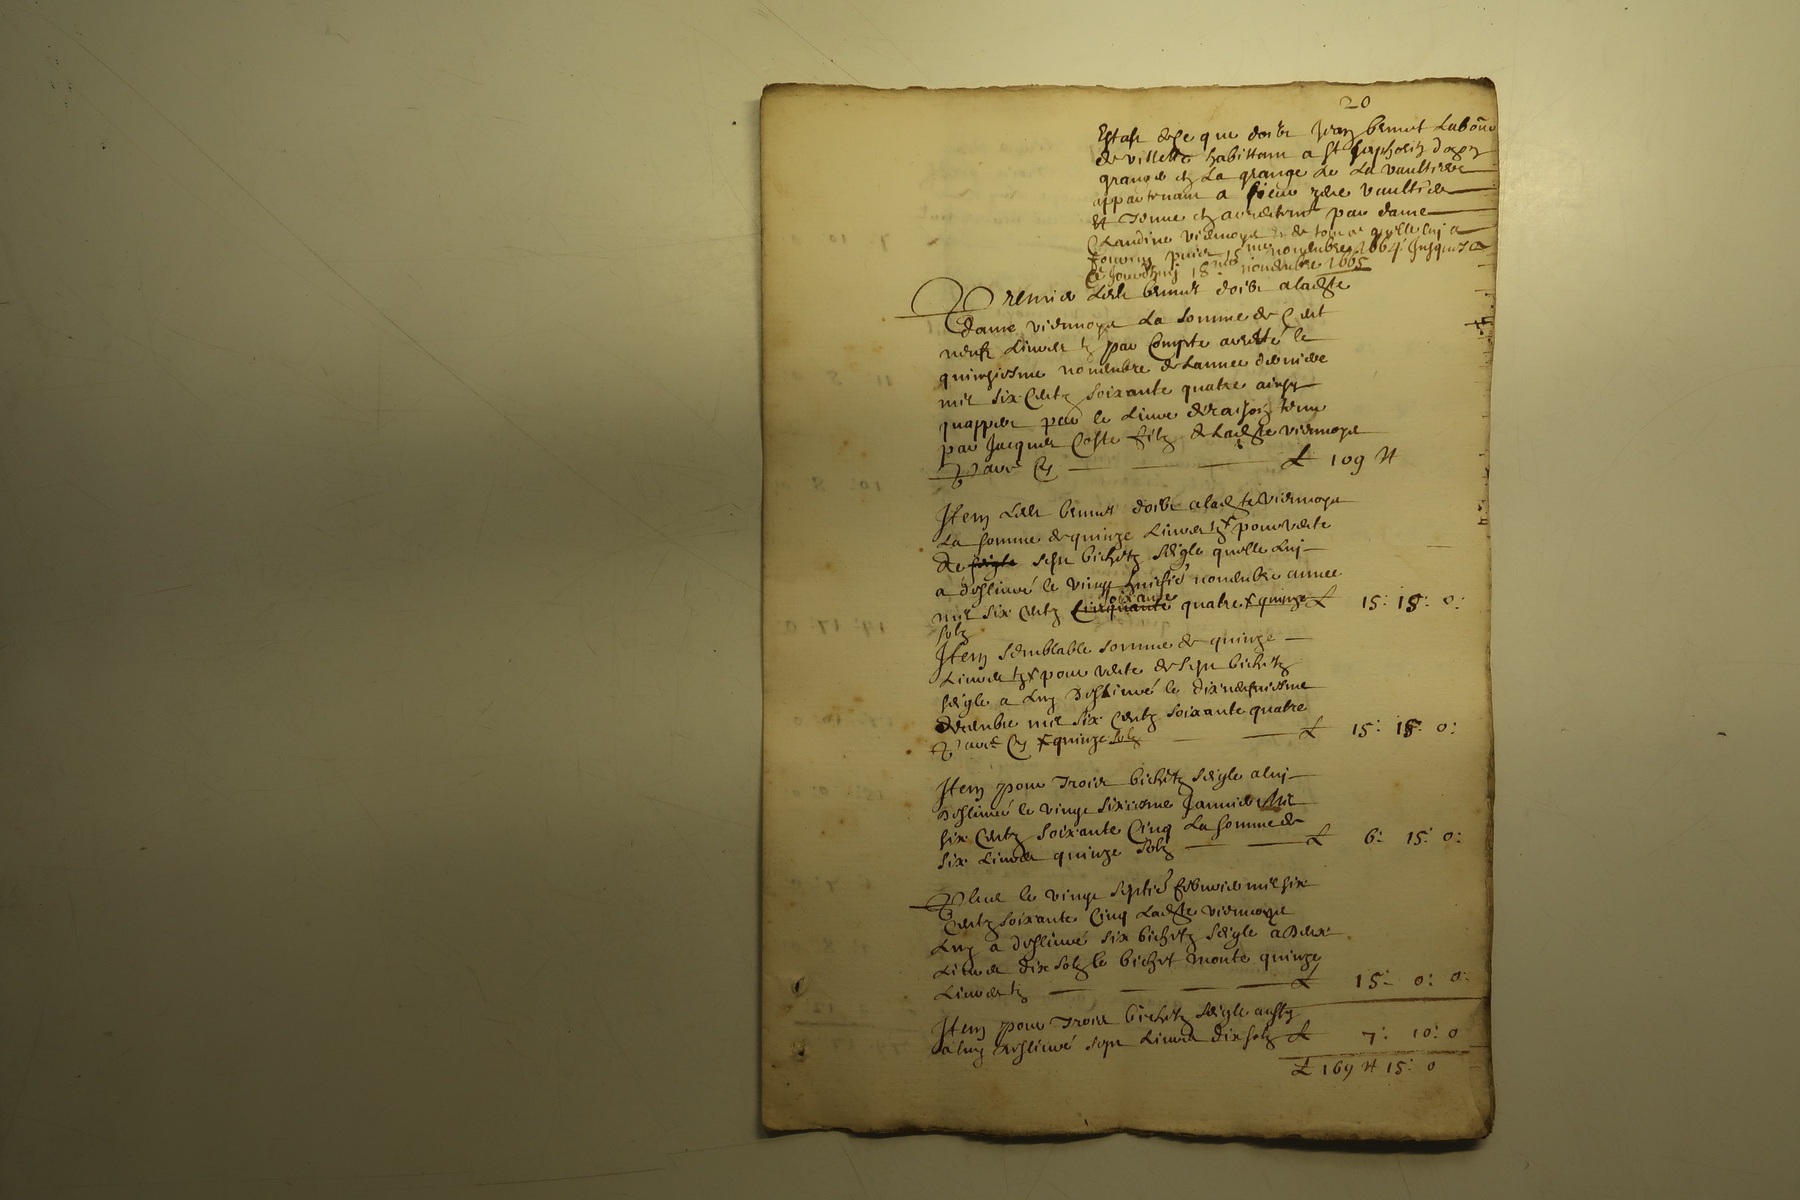 20
Estat de ce que doibt Jean benoit Laboureur
de villette habittant a St Simphorin dozon
granger en La grange de La vaultiere
appartenant a sieur vaultier
et tenue en par dame
Claudine viennoys de tout ce qu'elle luy a
fourny puis le 15me novembre 1664 Jusques a
Ce Jourd'huy 18me novembre 1665
Premier Ledt benoit doibt a ladte
dame viennoys La somme de Cent
neufz Livres tz par Compte arresté le
quinziesme novembre de Lannee derniere
mil six Centz soixante quatre ainsy
quappert par le Livre de raison tenu
par Jacques Coste filz de Ladte viennoys
Pour Cy £ 109 tt
Item Ledt benoit doibt a ladte viennoys
La somme de quinze Livres tz pour vente
de seigle sept bichetz seigle quelle Luy
a deslivré le vingt huictie novembre annee
mil six Centz Cinquante soixante quatre & quinze £ 15: 15: 0:
solz
Item semblable somme de quinze
Livres tz pour vente de sept bichetz
seigle a Luy deslivré le dixneufviesme
decembre mil six Centz soixante quatre
Pour Cy & quinze solz £ 15: 15: 0:
Item pour Trois bichetz seigle a luy
deslivré le vingt sixiesme Janvier Mil
six Centz soixante Cinq La somme de
six Livres quinze solz £ 6: 15: 0:
Plus le vingt septie febvrier mil six
Centz soixante Cinq Ladte viennoys
Luy a deslivré six bichetz seigle a Deux
Livres dix solz le bichet monte quinze
Livres tz £ 15: 0: 0:
Item pour Trois bichetz seigle aussy
a luy deslivré sept Livres dix solz £ 7: 10: 0
£ 169 tt 15: 0